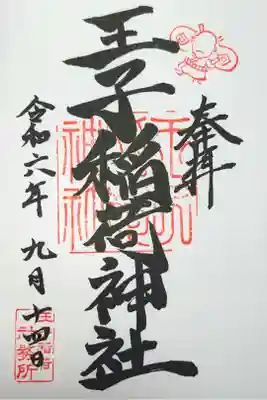 奉拝
王子稲荷神社
令和六年 九月 十四日
王子稲荷
社務所